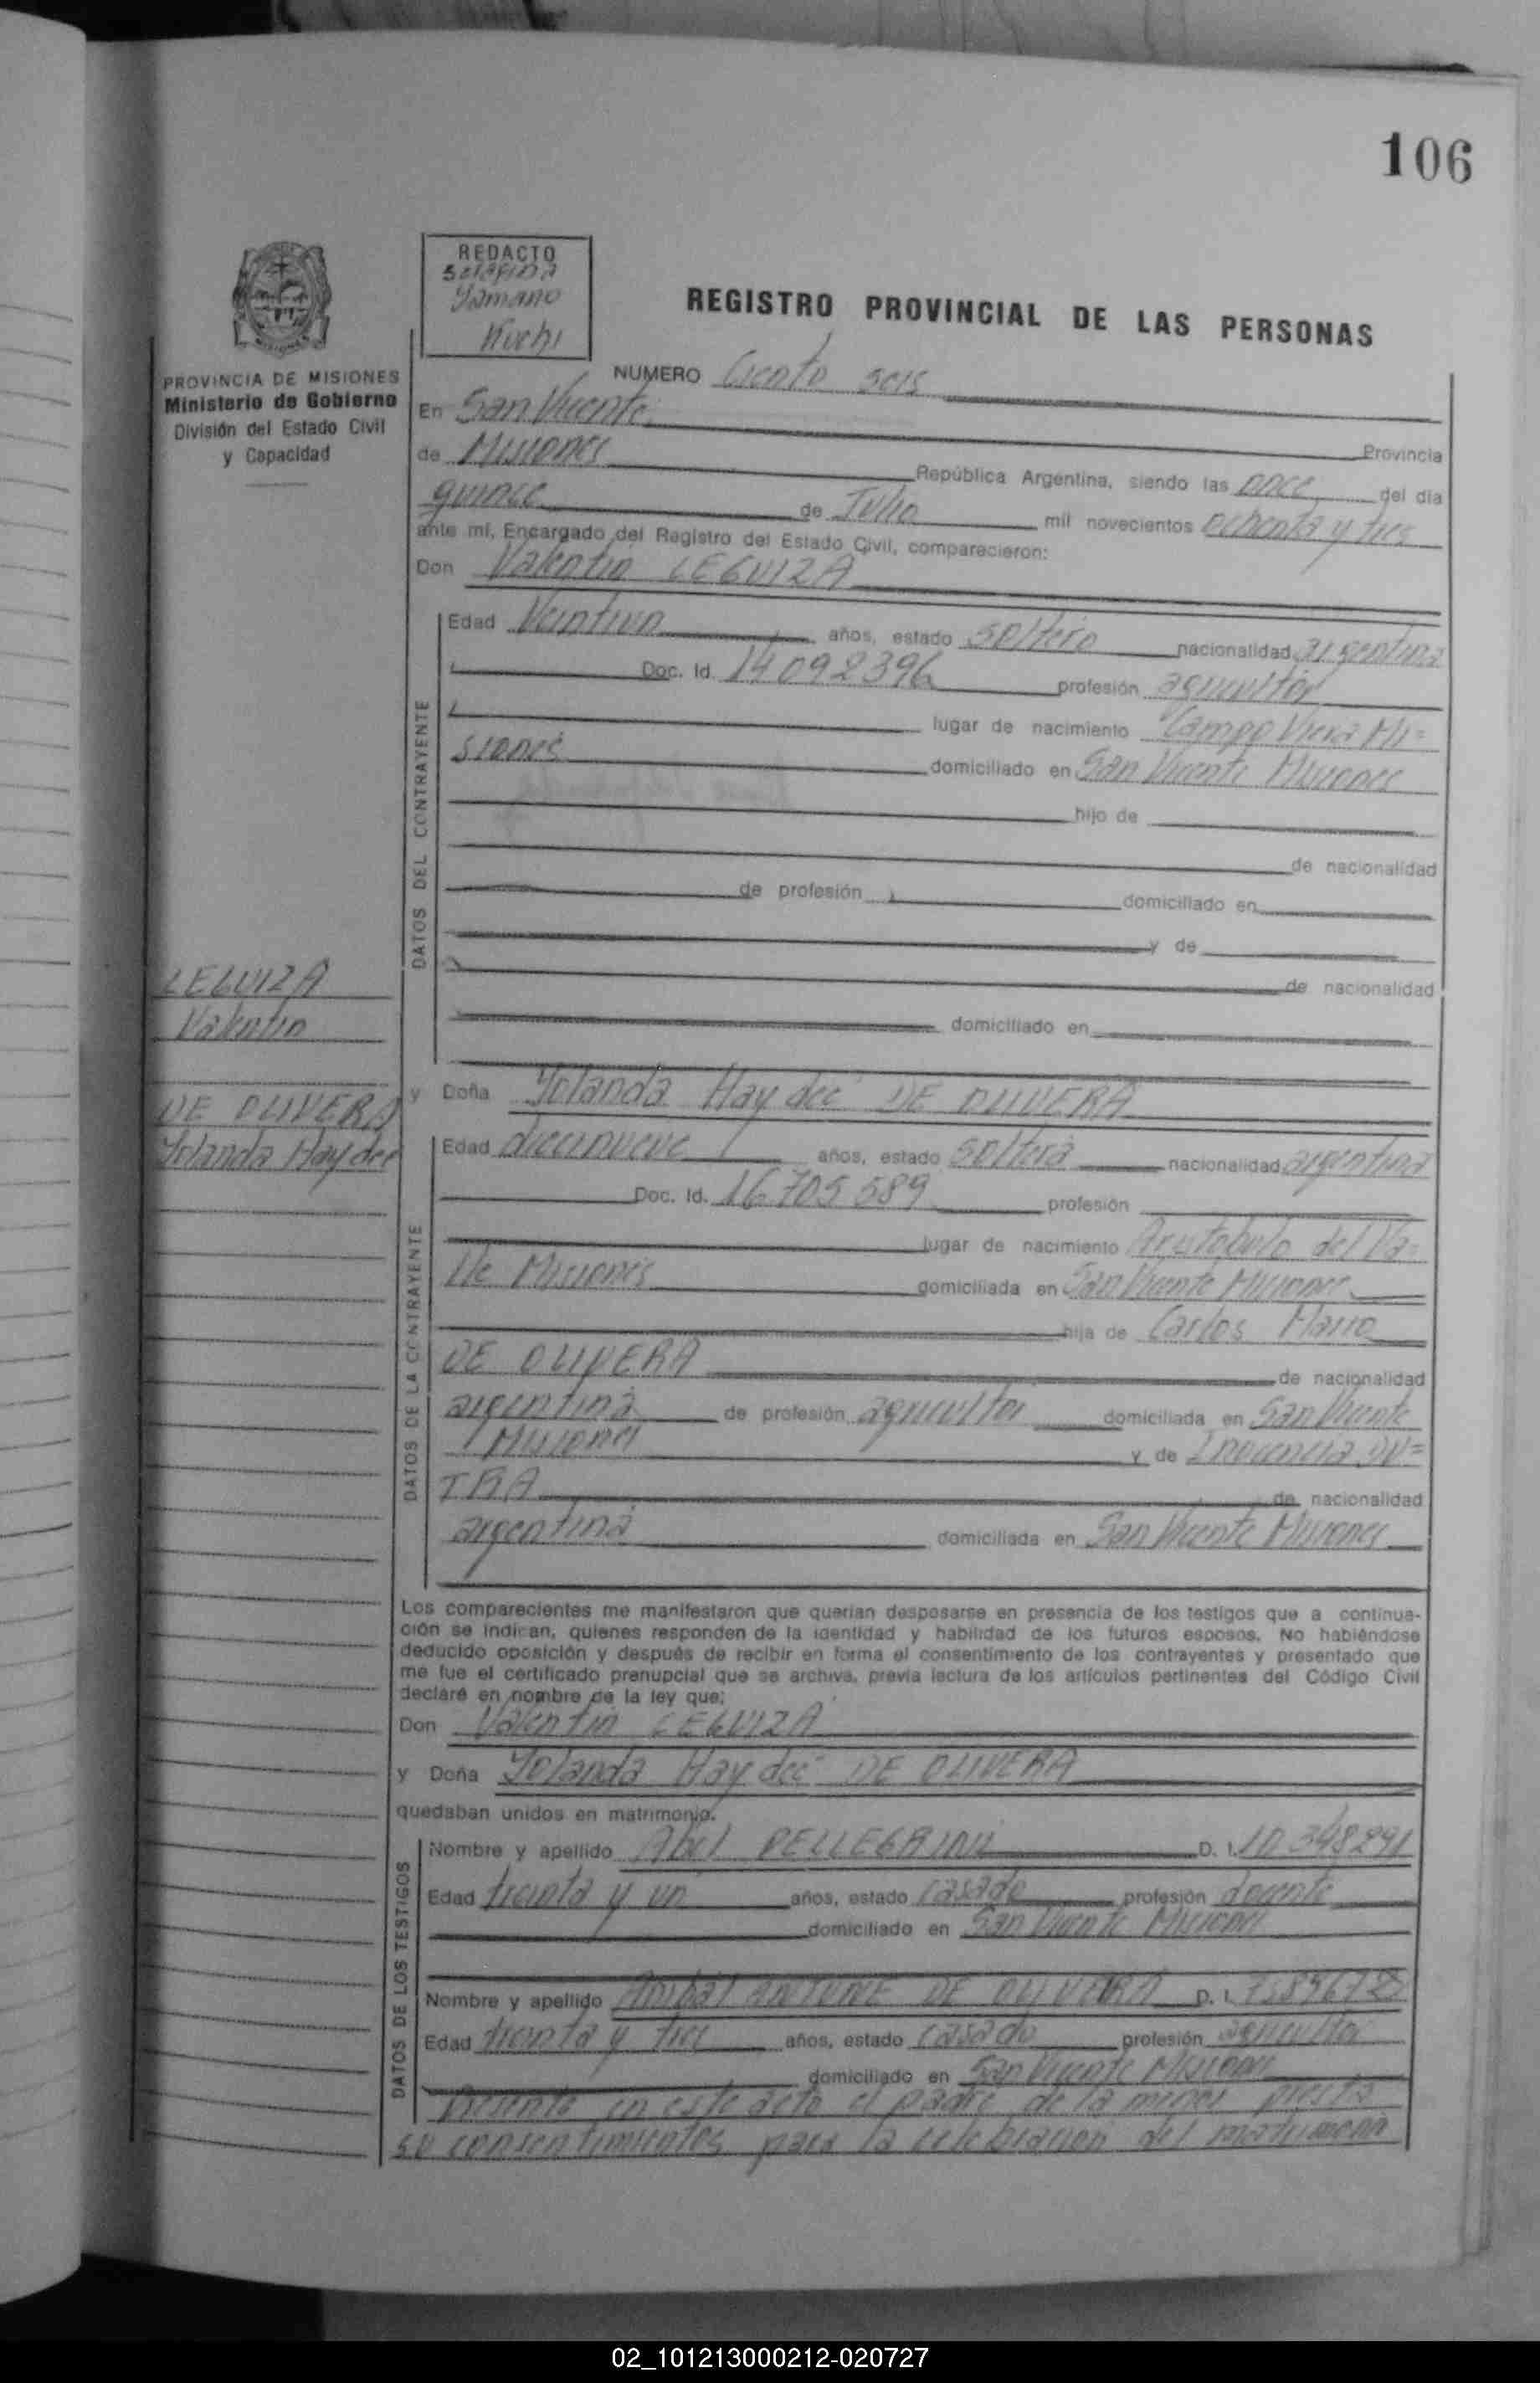 106
REDACTO
Serafina
Yamano
Kuchi
REGISTRO PROVINCIAL DE LAS PERSONAS
PROVINCIA DE MISIONES
Ministerio de Gobierno
División del Estado Civil
y Capacidad
NUMERO Ciento seis
En San Vicente Provincia
de Misiones República Argentina, siendo las once del día
quince de Julio mil novecientos ochenta y tres
ante mí, Encargado del Registro del Estado Civil, comparecieron:
Don Valentin LEGUIZA
DATOS DEL CONTRAYENTE
Edad Veintiun años, estado soltero nacionalidad argentina
Doc. Id. 14092396 profesión agricultor
lugar de nacimiento Campo Viera Mi=
siones domiciliado en San Vicente Misiones
hijo de
de nacionalidad
de profesión domiciliado en
y de
de nacionalidad
domiciliado en
LEGUIZA
Valentin
DE OLIVERA
Yolanda Haydee
y Doña Yolanda Haydeé DE OLIVERA
DATOS DE LA CONTRAYENTE
Edad diecinueve años, estado soltera nacionalidad argentina
Doc. Id. 16.705.589 profesión
lugar de nacimiento Aristobulo del Va=
lle Misiones domiciliada en San Vicente Misiones
hija de Carlos Mario
DE OLIVERA de nacionalidad
argentina de profesión agricultor domiciliada en San Vicente
Misiones y de Inocencia DU=
TRA de nacionalidad
argentina domiciliada en San Vicente Misiones
Los comparecientes me manifestaron que querían desposarse en presencia de los testigos que a continua-
ción se indican, quienes responden de la identidad y habilidad de los futuros esposos. No habiéndose
deducido oposición y después de recibir en forma el consentimiento de los contrayentes y presentado que
me fue el certificado prenupcial que se archiva, previa lectura de los artículos pertinentes del Código Civil
declaré en nombre de la ley que:
Don Valentin LEGUIZA
y Doña Yolanda Haydeé DE OLIVERA
quedaban unidos en matrimonio.
DATOS DE LOS TESTIGOS
Nombre y apellido Abel PELLEGRINI D. I. 10.348291
Edad treinta y un años, estado casado profesión docente
domiciliado en San Vicente Misiones
Nombre y apellido Anibal ANTUNE DE OLIVERA D. I.
Edad treinta y tres años, estado casado profesión agricultor
domiciliado en San Vicente Misiones
Presente en este acto el padre de la menor presta
su consentimientos para la celebracion del matrimonio
02_101213000212-020727